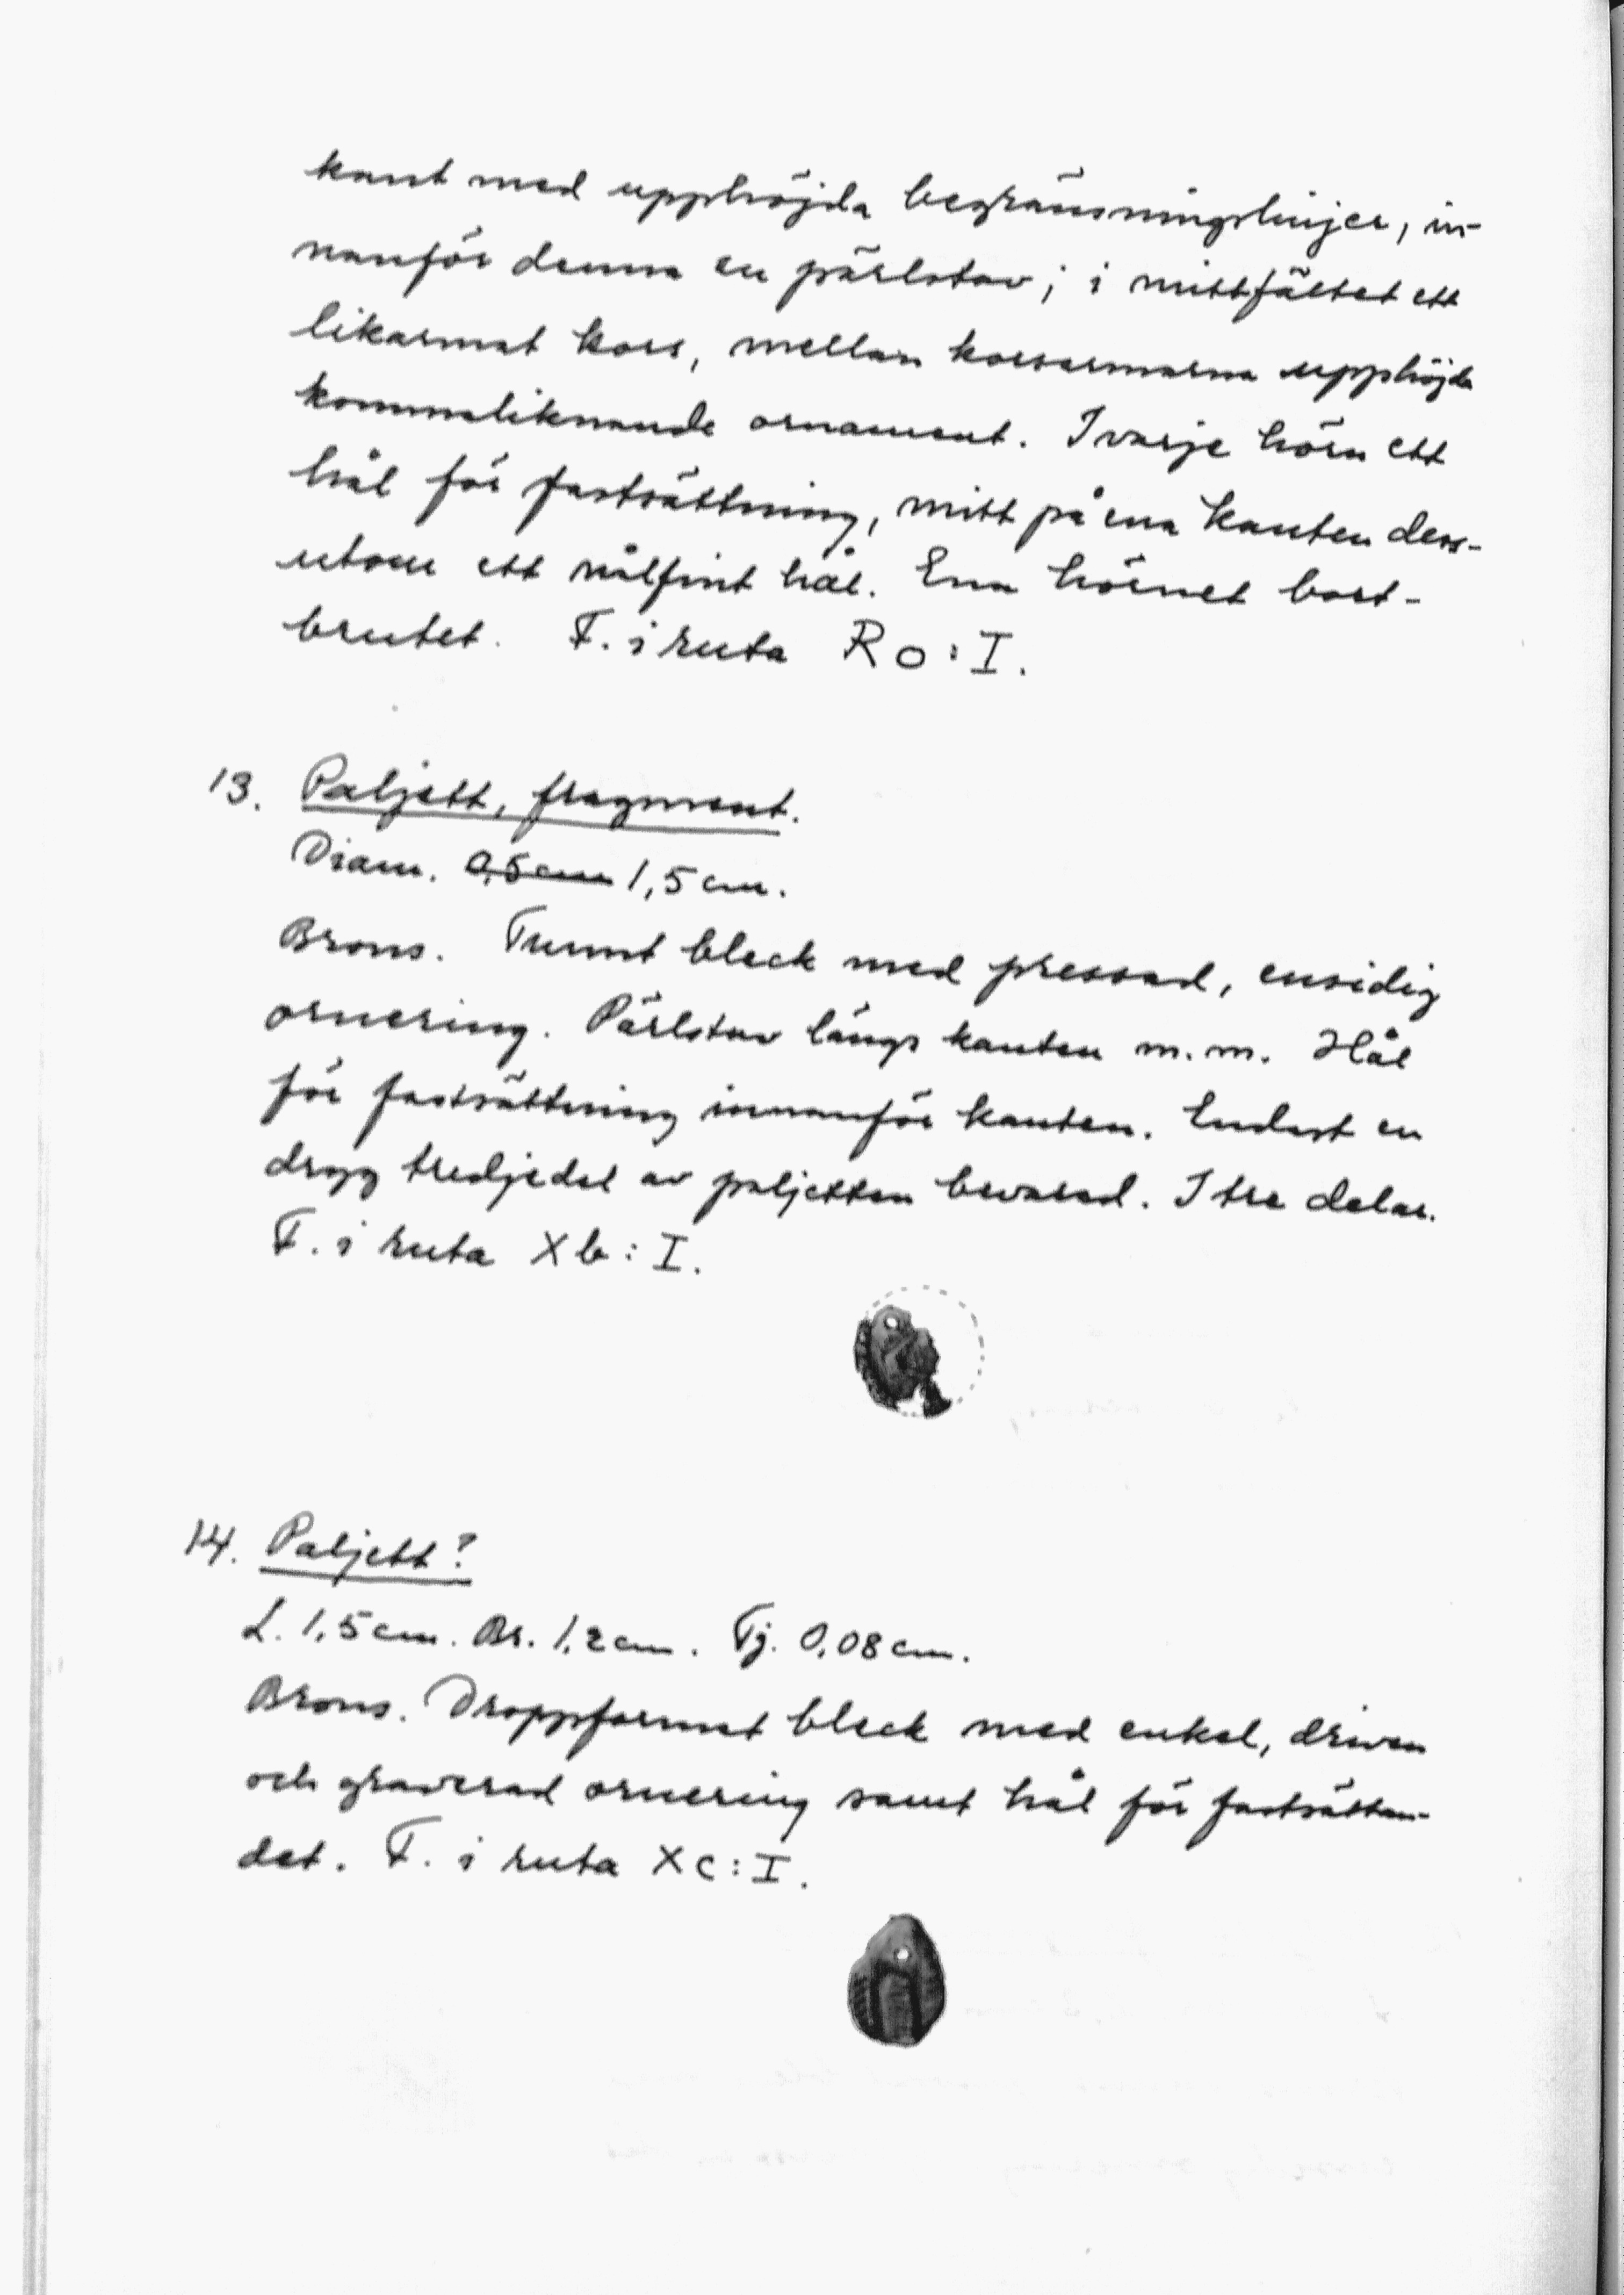 kant med upphöjda begränsningslinjer, in-
nanför denna en pärlstav; i mittfältet ett
likarmat kors, mellan korsarmarna upphöjda
kommaliknande ornament. I varje hörn ett
hål för fastsättning, mitt på ena kanten dess-
utom ett nålfint hål. Ena hörnet bort-
brutet. F. i ruta Ro:I.
13. Paljett, fragment.
Diam. 0,5 cm 1,5 cm.
Brons. Tunnt bleck med pressad, ensidig
ornering. Pärlstav längs kanten m.m. Hål
för fastsättning innanför kanten. Endast en
drygg tredjedel av paljetten bevarad. I tre delar.
F. i ruta Xb:I.
14. Paljett?
L. 1,5 cm. Br. 1,2 cm. Tj. 0,08 cm.
Brons. Droppformat bleck med enkel, driven
och graverad ornering samt hål för fastsättan-
det. F. i ruta Xc:I.